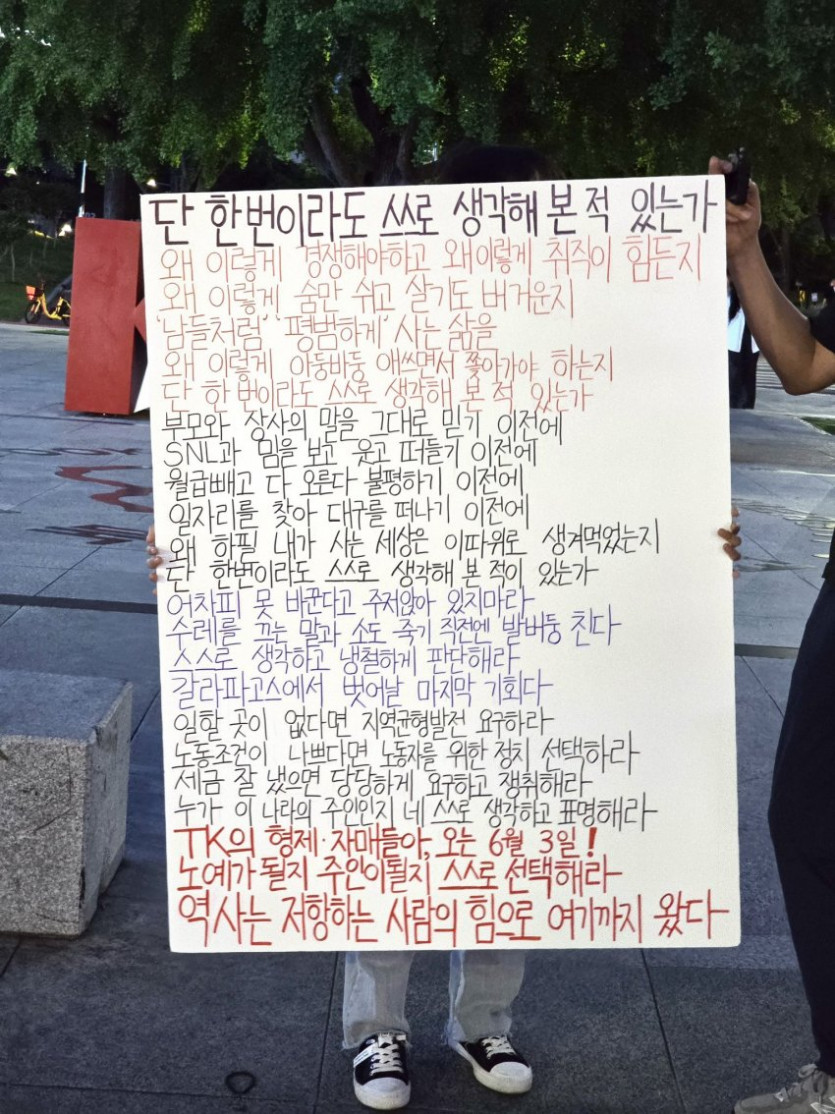 단 한번이라도 스스로 생각해 본 적 있는가
왜 이렇게 경쟁해야하고 왜 이렇게 취직이 힘든지
왜 이렇게 숨만 쉬고 살기도 버거운지
'남들처럼' '평범하게' 사는 삶을
왜 이렇게 아둥바둥 애쓰면서 쫓아가야 하는지
단 한 번이라도 스스로 생각해 본 적 있는가
부모와 상사의 말을 그대로 믿기 이전에
SNL과 밈을 보고 웃고 떠들기 이전에
월급빼고 다 오른다 불평하기 이전에
일자리를 찾아 대구를 떠나기 이전에
왜 하필 내가 사는 세상은 이따위로 생겨먹었는지
단 한번이라도 스스로 생각해 본 적이 있는가
어차피 못 바꾼다고 주저앉아 있지마라
수레를 끄는 말과 소도 죽기 직전엔 발버둥 친다
스스로 생각하고 냉철하게 판단해라
갈라파고스에서 벗어날 마지막 기회다
일할 곳이 없다면 지역균형발전 요구하라
노동조건이 나쁘다면 노동자를 위한 정치 선택하라
세금 잘 냈으면 당당하게 요구하고 쟁취해라
누가 이 나라의 주인인지 네 스스로 생각하고 표명해라
TK의 형제·자매들아, 오는 6월 3일!
노예가 될지 주인이될지 스스로 선택해라
역사는 저항하는 사람의 힘으로 여기까지 왔다